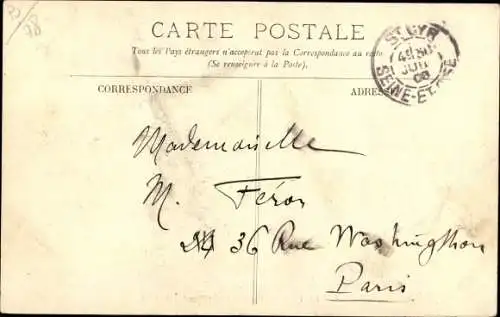 CARTE POSTALE
Tous les Pays étrangers n'acceptent pas la Correspondance au recto
(Se renseigner à la Poste).
CORRESPONDANCE
ADRES
ST CYR
JUIL
08
SEINE-ET-OISE
Mademoiselle
M. Féron
24 36 Rue Washingthon
Paris